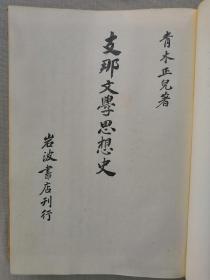 青木正兒著
支那文學思想史
岩波書店刊行